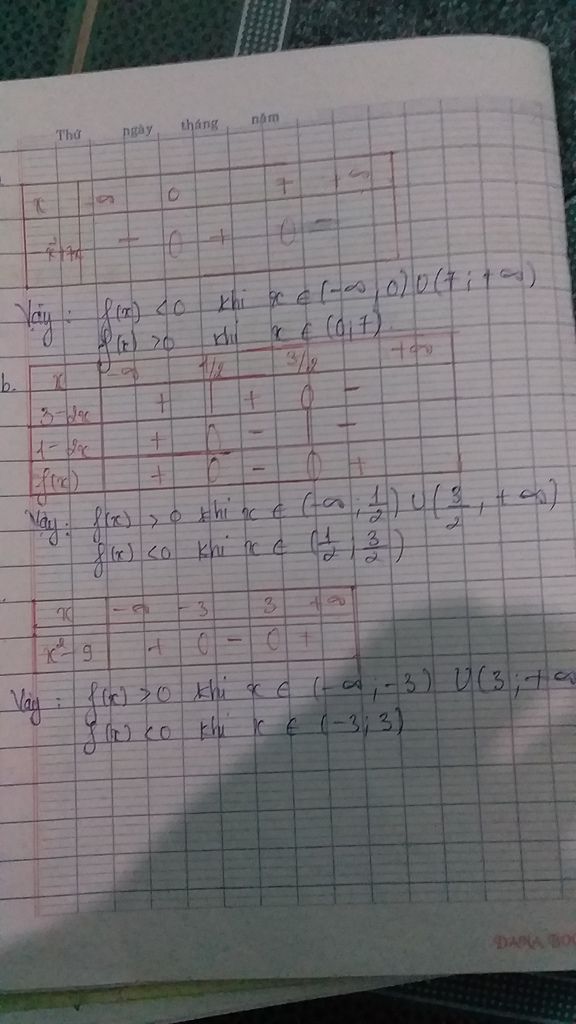 Thứ ngày tháng năm
x -∞ 0 7 +∞
-x²+7x - 0 + 0 -
Vậy: f(x) <0 khi x ∈ (-∞, 0) U (7; +∞)
f(x) >0 khi x ∈ (0; 7).
b. x -∞ 1/2 3/2 +∞
3-2x + | + 0 -
1-2x + 0 - | -
f(x) + 0 - 0 +
Vậy: f(x) >0 khi x ∈ (-∞; 1/2) U (3/2, +∞)
f(x) <0 khi x ∈ (1/2; 3/2)
x -∞ -3 3 +∞
x²-9 + 0 - 0 +
Vậy: f(x) >0 khi x ∈ (-∞; -3) U (3; +∞
f(x) <0 khi x ∈ (-3; 3)